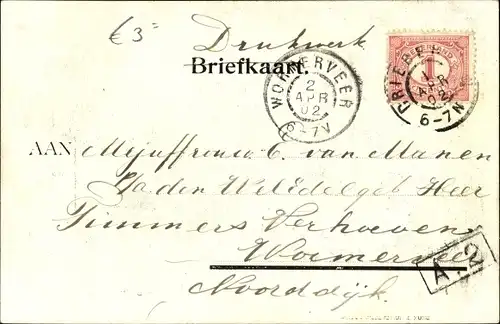 €3=
Drukwerk
Briefkaart.
WORMERVEER
2
APR
02
6-7N
DRIEBER
1
APR
02
6-7N
AAN Mejuffrouw C. van Manen
p/a den WelEdelgeb Heer
Timmers Verhoeven
Wormerveer
Noorddijk.
A. 2